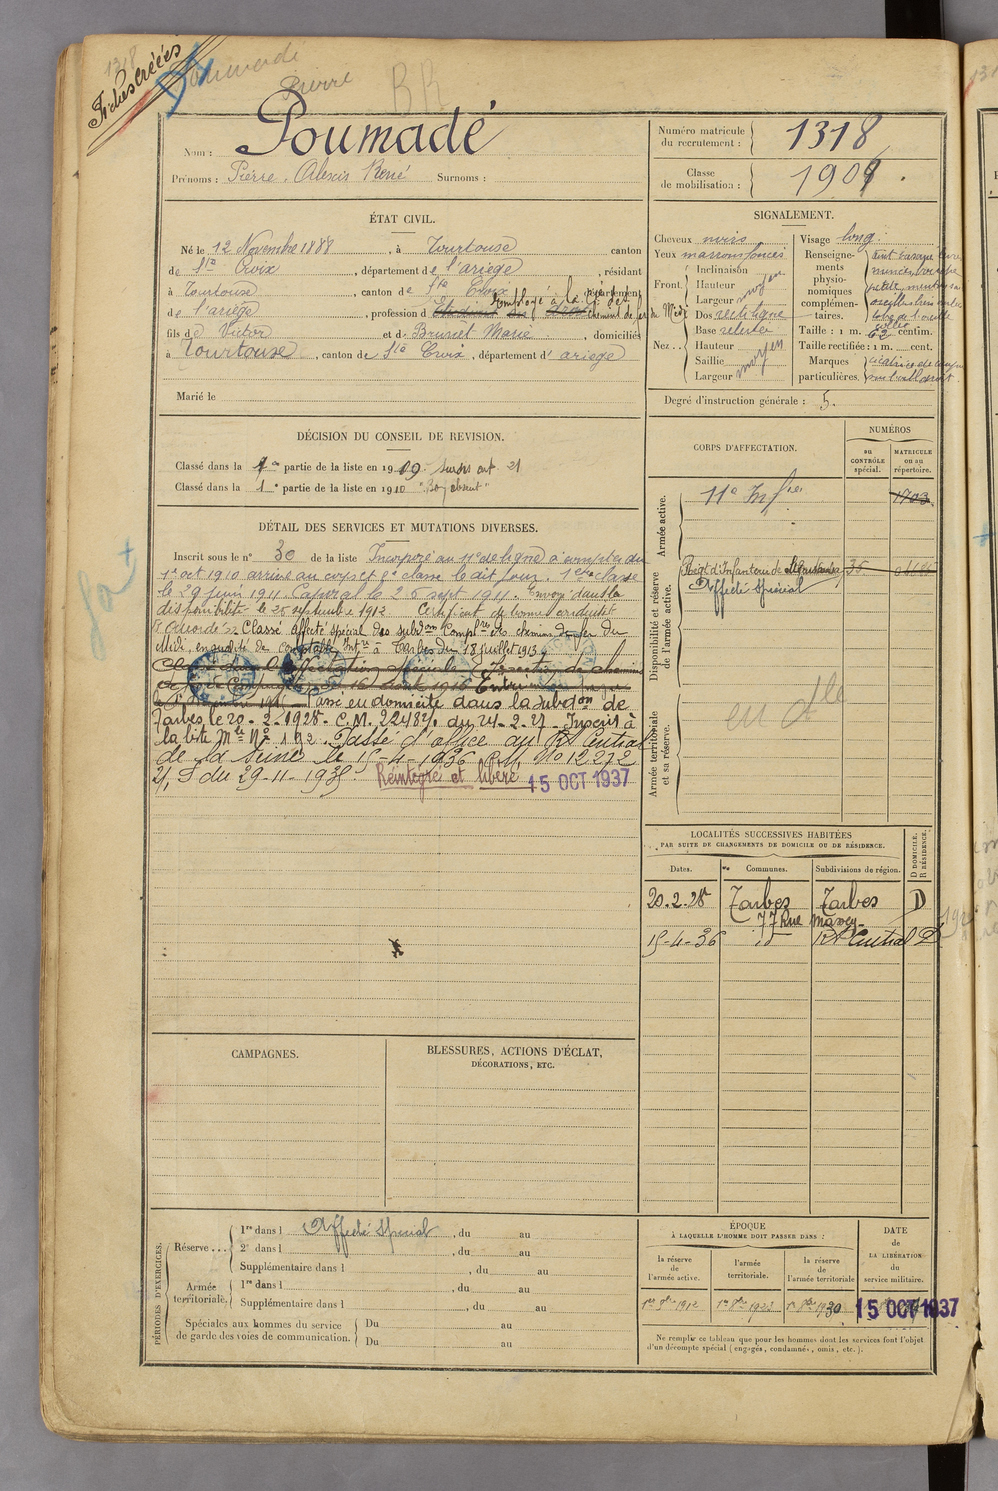 1318
Fiches créées
Poumadé
Pierre
BR
Nom : Poumadé
Prénoms : Pierre Alexis René Surnoms :
Numéro matricule du recrutement : 1318
Classe de mobilisation : 1908
ÉTAT CIVIL.
Né le 12 Novembre 1888, à Tourtouse canton
de Ste Croix, département de l'ariège, résidant
à Tourtouse, canton de Ste Croix, département
de l'ariège, profession d Etudiant en droit employé à la Cie des chemins de fer du Midi
fils de Victor et de Brusset Marie domiciliés
à Tourtouse, canton de Ste Croix, département d' ariege
Marié le
SIGNALEMENT.
Cheveux noirs
Yeux marrons foncés
Front Inclinaison
Hauteur
Largeur moyen
Nez Dos rectiligne
Base relevée
Hauteur
Saillie moyen
Largeur
Visage long
Renseignements physionomiques complémentaires.
Taille : 1 m. 62 centim.
Taille rectifiée : 1 m. cent.
Marques particulières.
Degré d'instruction générale : 5.
DÉCISION DU CONSEIL DE REVISION.
Classé dans la partie de la liste en 1909. Sursis art 21
Classé dans la 1e partie de la liste en 1910 "Bon absent"
DÉTAIL DES SERVICES ET MUTATIONS DIVERSES.
Inscrit sous le n° 30 de la liste Incorporé au 11e de ligne à compter du
1er oct 1910 arrivé au corps et 2e classe le dit jour. 1ere classe
le 29 juin 1911. Caporal le 26 sept 1911. Envoyé dans la
disponibilité le 25 septembre 1912. Certificat de bonne conduite
"Accordé". Classé affecté spécial des subdons Complres des chemins de fer du
Midi, en qualité de comptable Intre à Tarbes du 18 juillet 1913
Passé en domicile dans la subdon de
Tarbes le 20-2-1928. C.M. du 21-2-27. Inscrit à
la liste Mle No 192. Passé d'office au Rt Central
de la Seine le 15-4-1936 No 12272
2/1 S du 29-11-1935 Réintégré et libéré 15 OCT 1937
CORPS D'AFFECTATION.
NUMÉROS
au CONTRÔLE spécial.
MATRICULE ou au répertoire.
Armée active.
11e Infie 1703
Disponibilité et réserve de l'armée active.
Régt d'Infanterie de 36
Affecté Spécial
Armée territoriale et sa réserve.
en dle
LOCALITÉS SUCCESSIVES HABITÉES
PAR SUITE DE CHANGEMENTS DE DOMICILE OU DE RÉSIDENCE.
Dates. Communes. Subdivisions de région. D DOMICILE. R RÉSIDENCE.
20-2-28 Tarbes Tarbes D
77 Rue Massey
15-4-36 id Rt Central D
CAMPAGNES.
BLESSURES, ACTIONS D'ÉCLAT,
DÉCORATIONS, ETC.
PÉRIODES D'EXERCICES.
Réserve ... 1re dans l Affecté Spécial, du au
2e dans l , du au
Supplémentaire dans l , du au
Armée territoriale. 1re dans l , du au
Supplémentaire dans l , du au
Spéciales aux hommes du service de garde des voies de communication. Du au
Du au
ÉPOQUE
À LAQUELLE L'HOMME DOIT PASSER DANS :
la réserve de l'armée active.
l'armée territoriale.
la réserve de l'armée territoriale
DATE de LA LIBÉRATION du service militaire.
1er 8bre 1912 1er 8bre 1923 1er 8bre 1930 15 OCT 1937
Ne remplir ce tableau que pour les hommes dont les services font l'objet
d'un décompte spécial (engagés, condamnés, omis, etc.).